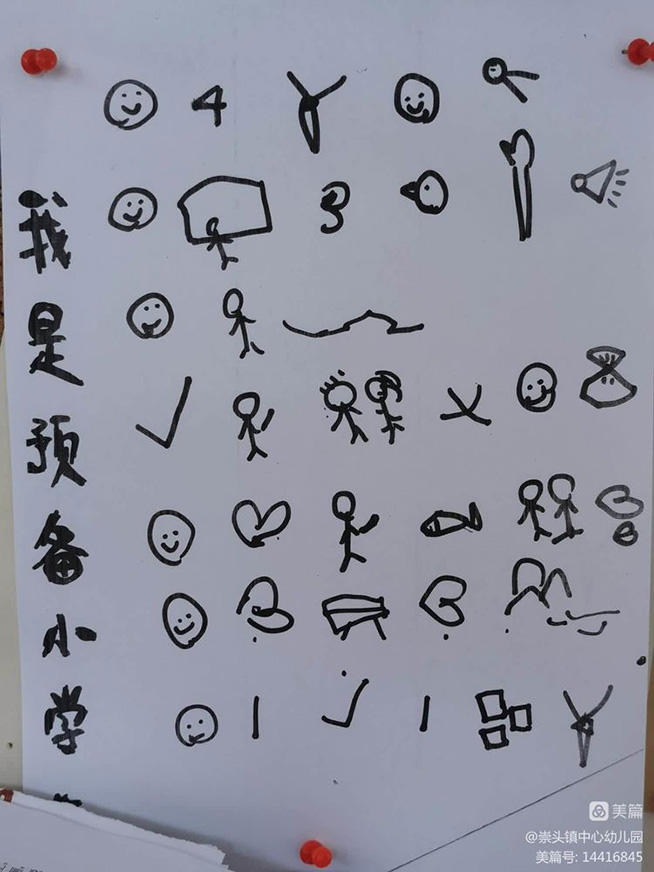 我是预备小学
4
3
美篇
@崇头镇中心幼儿园
美篇号: 14416845